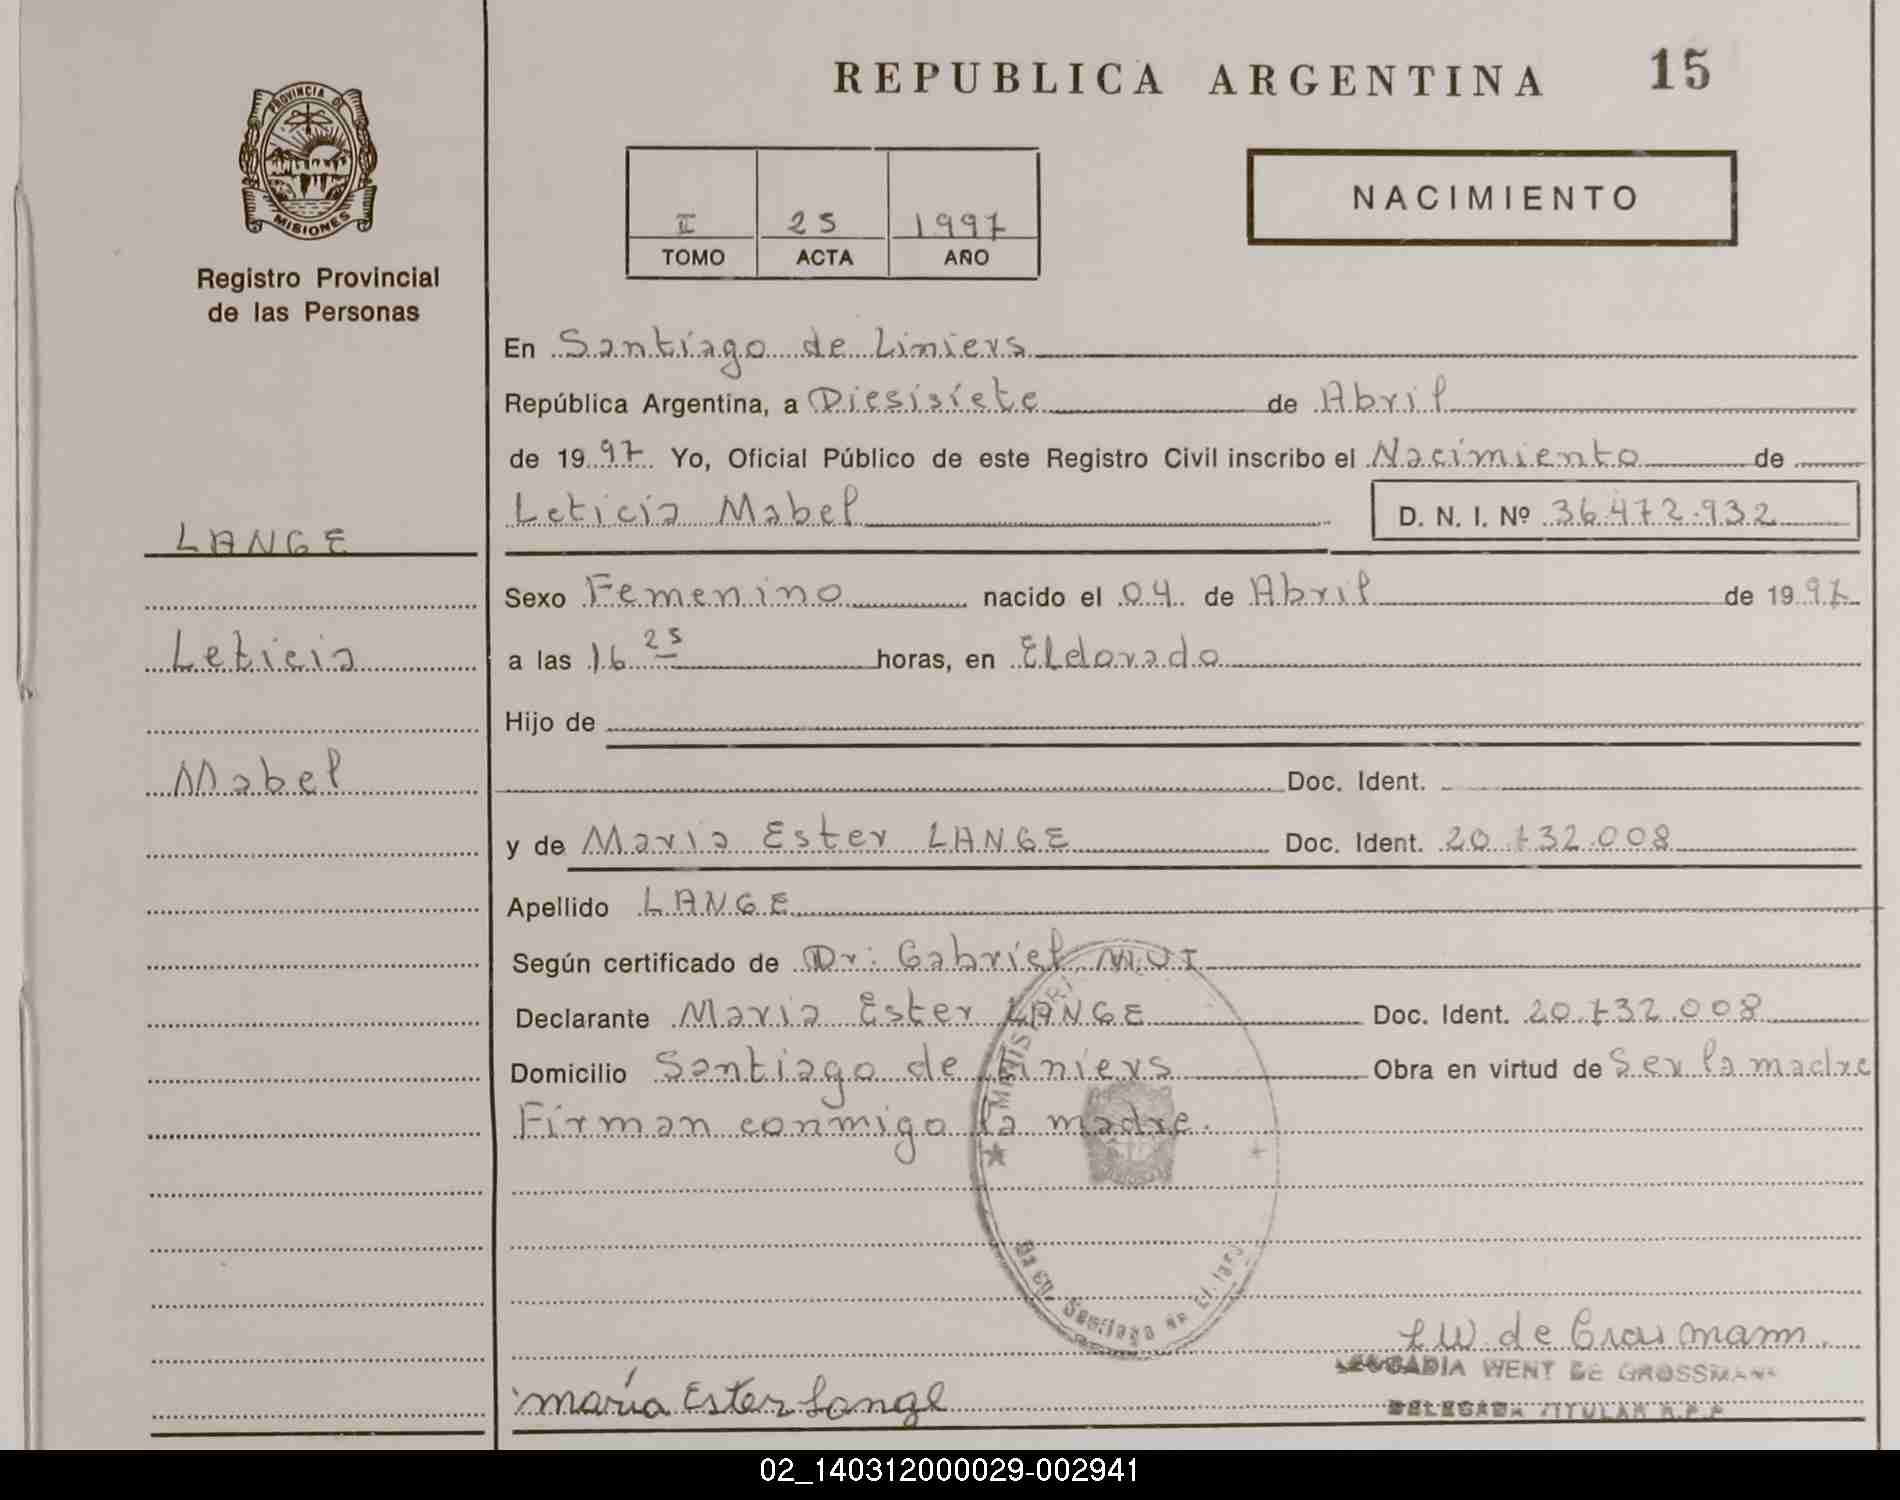 REPUBLICA ARGENTINA 15
PROVINCIA DE
MISIONES
Registro Provincial
de las Personas
II 25 1997
TOMO ACTA AÑO
NACIMIENTO
En Santiago de Liniers
República Argentina, a Diesisiete de Abril
de 1997 Yo, Oficial Público de este Registro Civil inscribo el Nacimiento de
Leticia Mabel D. N. I. Nº 36.472.932
LANGE
Leticia
Mabel
Sexo Femenino nacido el 04 de Abril de 1997
a las 16 25 horas, en Eldorado
Hijo de
Doc. Ident.
y de Maria Ester LANGE Doc. Ident. 20.732.008
Apellido LANGE
Según certificado de Dr. Gabriel
Declarante Maria Ester LANGE Doc. Ident. 20.732.008
Domicilio Santiago de Liniers Obra en virtud de Ser la madre
Firman conmigo la madre.
Santiago de
L W. de Grosmann.
LEOCADIA WENT DE GROSSMANN
maría Ester Lange
DELEGADA TITULAR R.P.P.
02_140312000029-002941